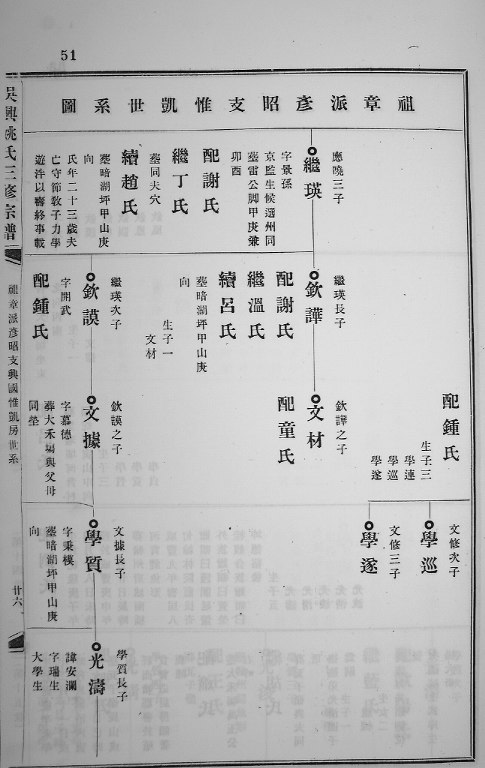 51
祖章派彥昭支惟凱世系圖
應晚三子
繼瑛
字景孫
京監生候選州同
塟雷公脚甲庚兼
卯酉
配謝氏
繼丁氏
塟同夫穴
續趙氏
塟暗湖坪甲山庚
向
氏年二十三歲夫
亡守節敎子力學
遊泮以壽終事載
繼瑛長子
欽譁
配謝氏
繼溫氏
續呂氏
塟暗湖坪甲山庚
向
生子一
文材
繼瑛次子
欽謨
字開武
配鍾氏
配鍾氏
生子三
學連
學巡
學遂
欽譁之子
文材
配童氏
欽謨之子
文據
字慕德
葬大禾塲與父母
同塋
文修次子
學巡
文修三子
學遂
文據長子
學質
字秉樸
塟暗湖坪甲山庚
向
學質長子
光濤
諱安瀾
字瑞生
大學生
吳興姚氏三修宗譜
祖章派彥昭支興國惟凱房世系
廿六